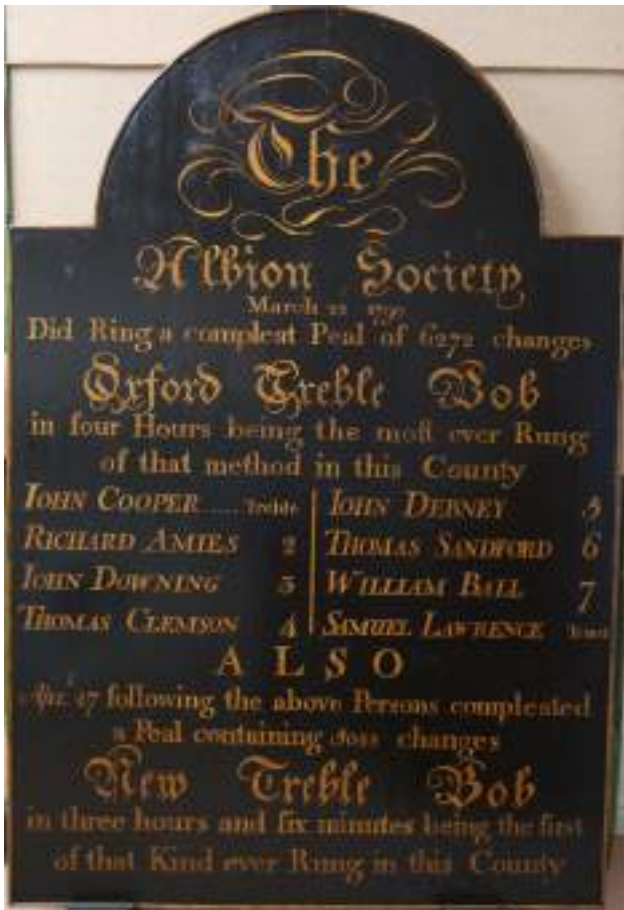 The
Albion Society
March 22 1797
Did Ring a compleat Peal of 6272 changes
Oxford Treble Bob
in four Hours being the moſt ever Rung
of that method in this County
IOHN COOPER ...... Treble | IOHN DEBNEY 5
RICHARD AMIES 2 | THOMAS SANDFORD 6
IOHN DOWNING 3 | WILLIAM BALL 7
THOMAS CLEMSON 4 | SAMUEL LAWRENCE Tenor
ALSO
17 following the above Persons compleated
a Peal containing changes
New Treble Bob
in three hours and ſix minutes being the first
of that Kind ever Rung in this County